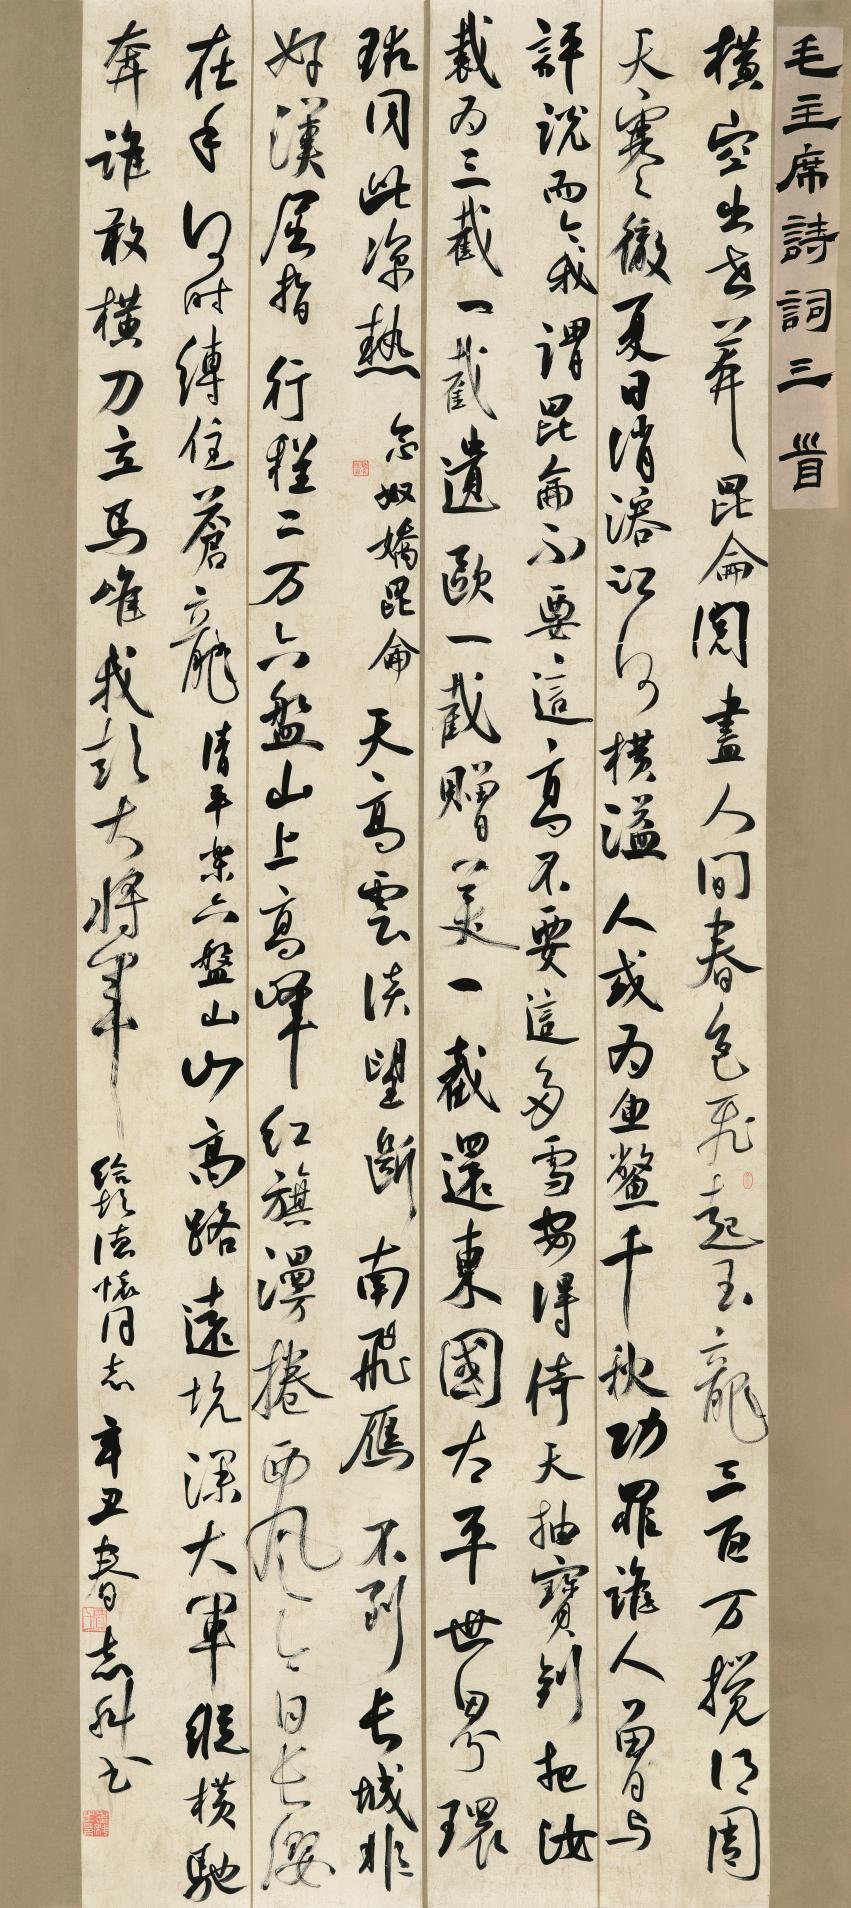 毛主席詩詞三首
橫空出世莽昆侖閱盡人間春色飛起玉龍三百万攪得周
天寒々徹夏日消溶江河橫溢人或為魚鱉千秋功罪誰人曾与
評說而今我謂昆侖不要這高不要這多雪安得倚天抽寶劍把汝
裁为三截一截遺歐一截贈美一截還東國太平世界環
球同此涼熱 念奴嬌昆侖 天高雲淡望斷南飛雁不到长城非
好漢屈指行程二万六盤山上高峰红旗漫捲西风今日长纓
在手何时縛住蒼龍 清平樂六盤山 山高路遠坑深大軍縱橫馳
奔誰敢橫刀立马唯我彭大將軍 給彭德懷同志 辛丑春 志科书